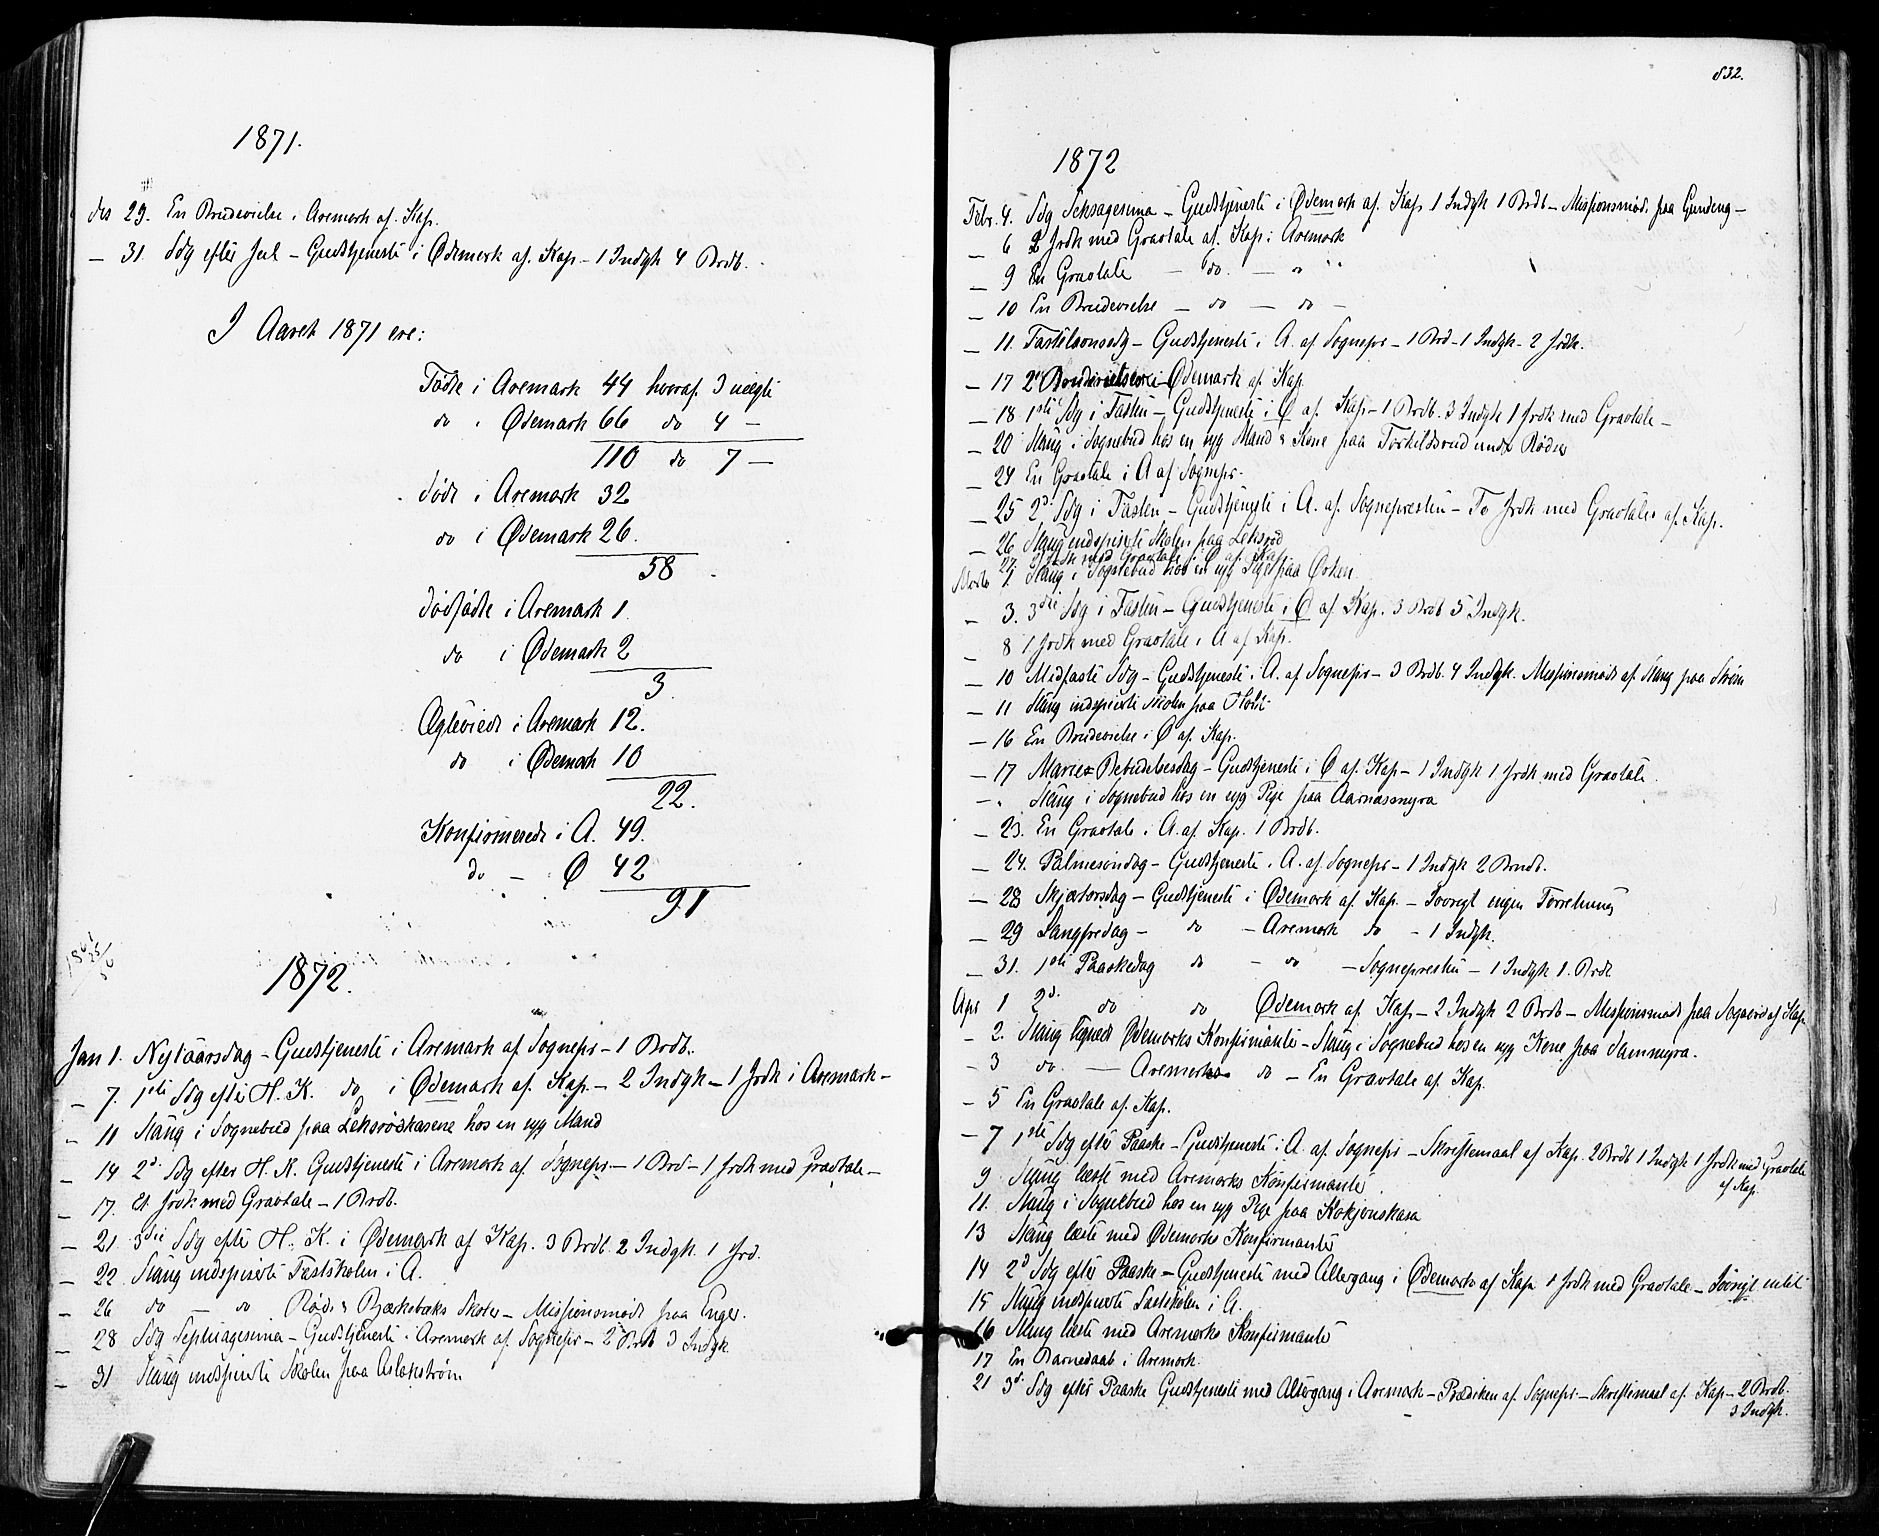 1871.
des 29. En Brudevielse i Aremark af Kap.
— 31. Sdg efter Jul – Gudstjeneste i Ødemark af Kap – 1 Indgk 4 Brdb.
I Aaret 1871 ere:
Fødte i Aremark 44 hvoraf 3 uægte
do i Ødemark 66 do 4 —
110 do 7 —
døde i Aremark 32
do i Ødemark 26.
58
dødfødte i Aremark 1.
do i Ødemark 2
3
Ægteviede i Aremark 12.
do i Ødemark 10
22.
Konfirmerede i A. 49.
do – Ø 42
91
1872.
Jan 1. Nytaarsdag – Gudstjeneste i Aremark af Sognepr – 1 Brdb.
— 7. 1ste Sdg efter H. K. do i Ødemark af Kap. – 2 Indgk – 1 Jrdk i Aremark –
— 11 Stang i Sognebud paa Leksrødkasene hos en syg Mand
— 14 2d. Sdg efter H. K. Gudstjeneste i Aremark af Sognepr – 1 Brd – 1 Jrdk med Gravtale –
— 17. Et Jrdk med Gravtale – 1 Brdb.
— 21 3die Sdg efter H. K. i Ødemark af Kap. 3 Brdb. 2 Indgk 1 Jrd.
— 22 Stang indspicerte Fastskolen i A.
— 26 do — do Røds & Bjærkebæks Skoler – Missionsmøde paa Enger.
— 28 Sdg Septuagesima – Gudstjeneste i Aremark af Sognepr – 2 Brdb 3 Indgk
— 31 Stang indspicerte Skolen paa Aslakstrøm
832.
1872
Febr. 4. Sdg Seksagesima – Gudstjeneste i Ødemark af Kap 1 Indgk 1 Brdb – Missionsmøde paa Gundeng –
— 6 2 Jrdk med Gravtale af Kap i Aremark
— 9 En Gravtale – do. — " "
— 10 En Brudevielse – do — do –
— 11. Fastelavnsdg – Gudstjeneste i A. af Sognepr – 1 Brd – 1 Indgk – 2 Jrdk.
— 17 2 Brudevielser i Ødemark af Kap
— 18 1ste Sdg i Fasten – Gudstjeneste i Ø af Kap – 1 Brdb. 3 Indgk 1 Jrdk med Gravtale –
— 20 Stang i Sognebud hos en syg Mand & Kone paa Torkildsrud under Røds
— 24 En Gravtale i A af Sognepr.
— 25 2d. Sdg i Fasten – Gudstjeneste i A. af Sognepresten – To Jrdk med Gravtaler af Kap.
— 26 Stang indspicerte Skolen paa Leksrød
27. Jrdk med Gravtale i Ø af Kap
Marts 1. Stang i Sognebud hos en syg Pige paa Ørken
— 3. 3die Sdg i Fasten – Gudstjeneste i Ø af Kap. 3 Brdb 5 Indgk.
— 8 1 Jrdk med Gravtale i A af Kap.
— 10 Midfaste Sdg – Gudstjeneste i A. af Sognepr – 3 Brdb. 4 Indgk. Missionsmøde af Stang paa Strøm
— 11 Stang indspicerte Skolen paa
— 16 En Brudevielse i Ø af Kap.
— 17 Mariæ Bebudelsesdag – Gudstjeneste i Ø af Kap – 1 Indgk 1 Jrdk med Gravtale.
— " Stang i Sognebud hos en syg Pige paa Aarnæsmyra
— 23. En Gravtale i A. af Kap. 1 Brdb.
— 24. Palmesøndag – Gudstjeneste i A. af Sognepr – 1 Indgk 2 Brudb.
— 28 Skjærtorsdag – Gudstjeneste i Ødemark af Kap. – Iøvrigt ingen Forretning
— 29 Langfredag – do – Aremark do – 1 Indgk.
— 31. 1ste Paaskedag do – do – Sognepresten – 1 Indgk 1. Brdb
Apr 1 2d. do do Ødemark af Kap – 2 Indgk 2 Brdb – Missionsmøde paa af Kap
— 2. Stang Ødemarks Konfirmanter – Stang i Sognebud hos en syg Kone paa Dammyra.
— 3 do. — Aremarks do – En Gravtale af Kap.
— 5 En Gravtale af Kap.
— 7 1ste Sdg efter Paaske – Gudstjeneste i A. af Sognepr – Skriftemaal af Kap. 2 Brdb 1 Indgk 1 Jrdk med Gravtale af Kap.
9 Stang læste med Aremarks Konfirmanter
11. Stang i Sognebud hos en syg Pige paa Kokjonskasa
13 Stang læste med Ødemarks Konfirmanter
14 2d Sdg efter Paaske – Gudstjeneste med Altergang i Ødemark af Kap 1 Jrdk med Gravtale – Iøvrigt intet
15 Stang indspicerte Fastskolen i A.
16 Stang læste med Aremarks Konfirmanter
17 En Barnedaab i Aremark.
21 3d. Sdg efter Paaske Gudstjeneste med Altergang i Aremark – Prædiken af Sognepr – Skriftemaal af Kap – 2 Brdb. 3 Indgk.